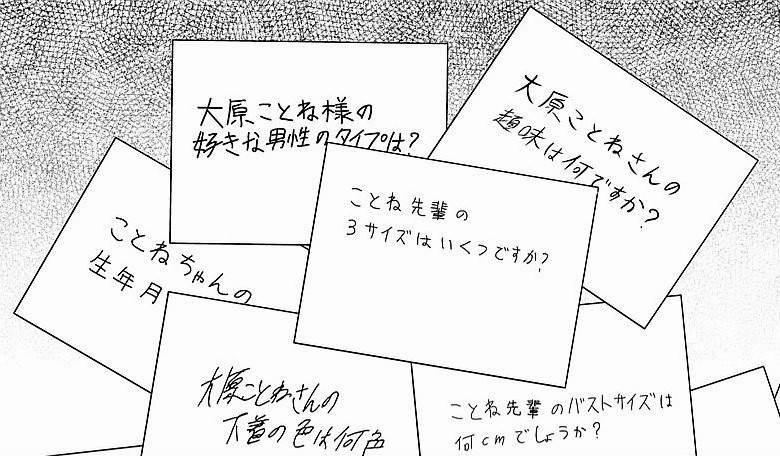 大原ことね様の
好きな男性のタイプは?
大原ことねさんの
趣味は何ですか?
ことね先輩の
3サイズはいくつですか?
ことねちゃんの
生年月
大原ことねさんの
下着の色は何色
ことね先輩のバストサイズは
何cmでしょうか?